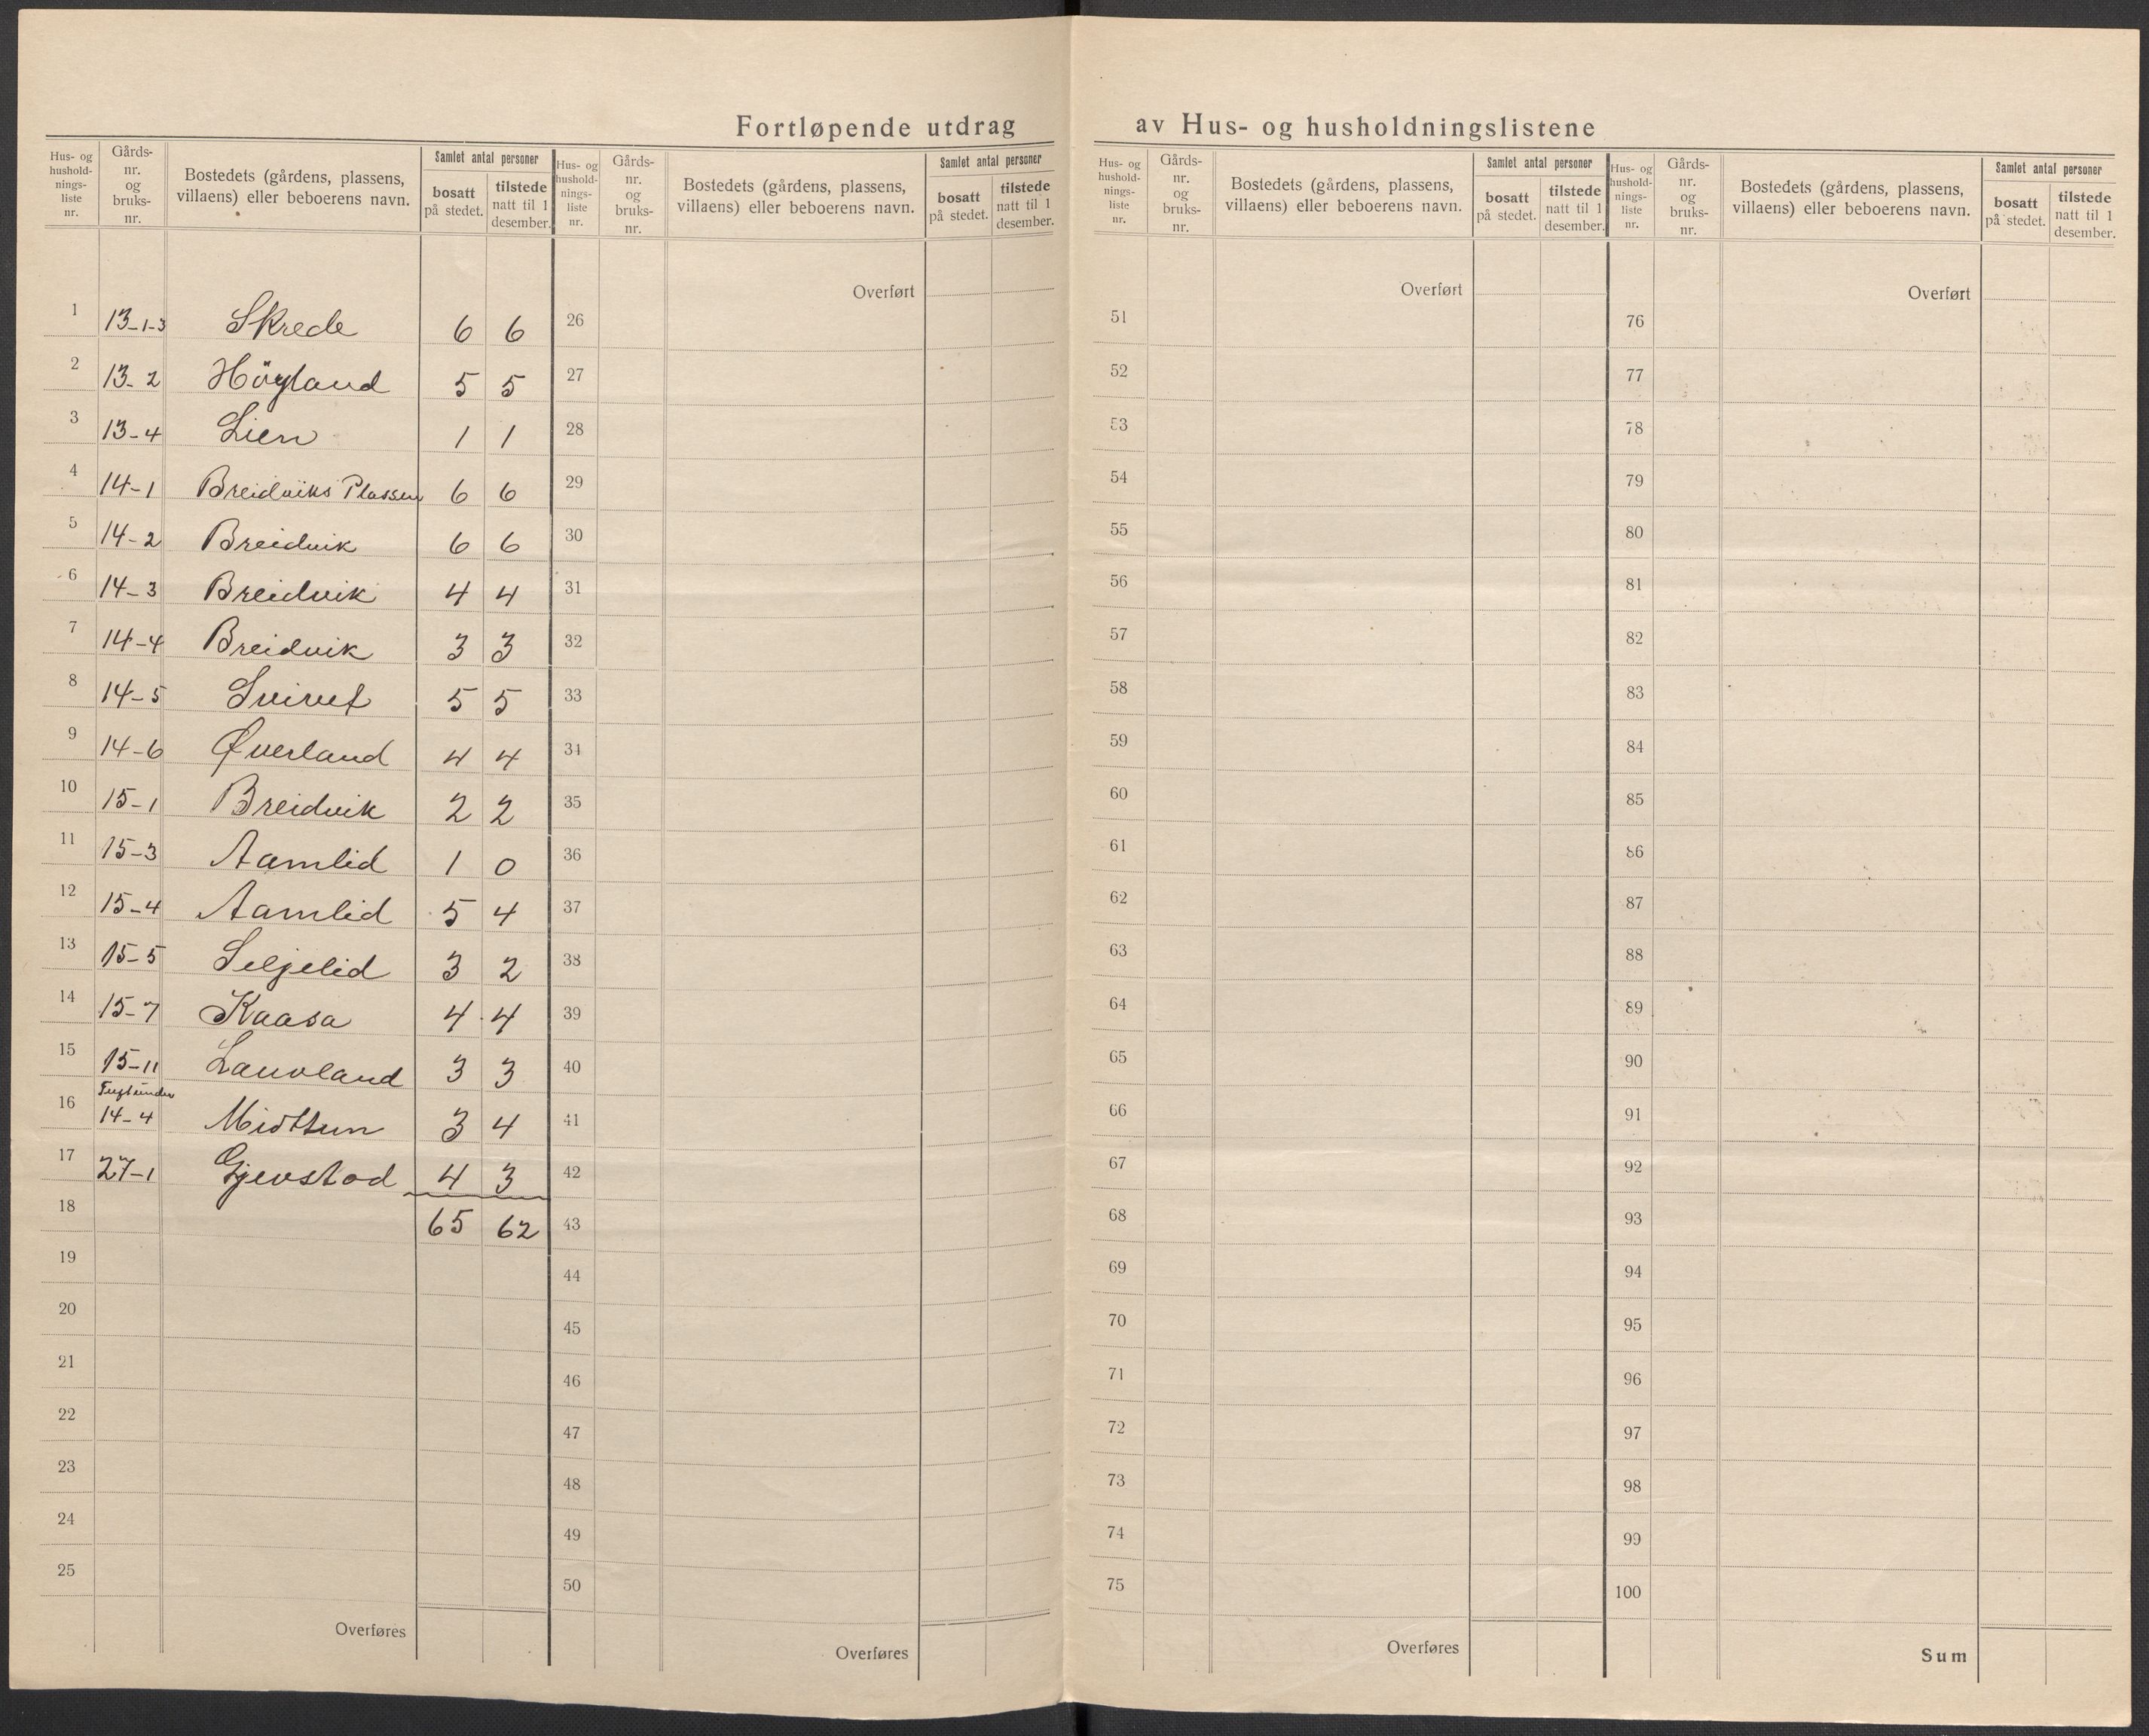 Fortløpende utdrag av Hus- og husholdningslistene
Hus- og hushold-nings-liste nr. | Gårds-nr. og bruks-nr. | Bostedets (gårdens, plassens, villaens) eller beboerens navn. | Samlet antal personer | bosatt på stedet. | tilstede natt til 1 desember.
1 13-1-3 Skrede 6 6
2 13-2 Höyland 5 5
3 13-4 Lien 1 1
4 14-1 Breidviks Plassen 6 6
5 14-2 Breidvik 6 6
6 14-3 Breidvik 4 4
7 14-4 Breidvik 3 3
8 14-5 5 5
9 14-6 Øverland 4 4
10 15-1 Breidvik 2 2
11 15-3 Aamlid 1 0
12 15-4 Aamlid 5 4
13 15-5 Seljelid 3 2
14 15-7 Kaasa 4 4
15 15-11 Lauvland 3 3
16 14-4 Midttun 3 4
17 27-1 Gjevstad 4 3
18 65 62
19
20
21
22
23
24
25
Overføres
Hus- og hushold-nings-liste nr. | Gårds-nr. og bruks-nr. | Bostedets (gårdens, plassens, villaens) eller beboerens navn. | Samlet antal personer | bosatt på stedet. | tilstede natt til 1 desember.
Overført
26
27
28
29
30
31
32
33
34
35
36
37
38
39
40
41
42
43
44
45
46
47
48
49
50
Overføres
Hus- og hushold-nings-liste nr. | Gårds-nr. og bruks-nr. | Bostedets (gårdens, plassens, villaens) eller beboerens navn. | Samlet antal personer | bosatt på stedet. | tilstede natt til 1 desember.
Overført
51
52
53
54
55
56
57
58
59
60
61
62
63
64
65
66
67
68
69
70
71
72
73
74
75
Overføres
Hus- og hushold-nings-liste nr. | Gårds-nr. og bruks-nr. | Bostedets (gårdens, plassens, villaens) eller beboerens navn. | Samlet antal personer | bosatt på stedet. | tilstede natt til 1 desember.
Overført
76
77
78
79
80
81
82
83
84
85
86
87
88
89
90
91
92
93
94
95
96
97
98
99
100
Sum